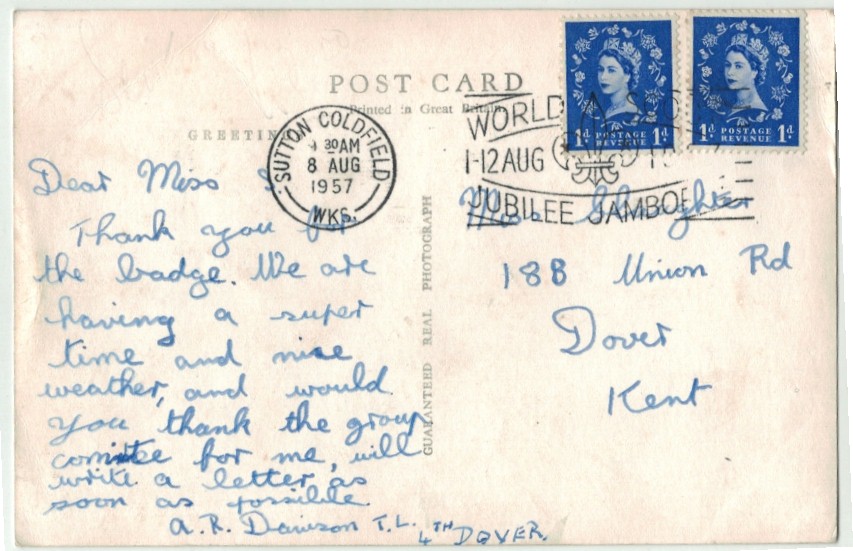 POST CARD
Printed in Great Britain
GREETIN
SUTTON COLDFIELD
30AM
8 AUG
1957
WKS.
WORLD
1-12 AUG
JUBILEE JAMBOR
POSTAGE
REVENUE
1d 1d
POSTAGE
REVENUE
1d 1d
GUARANTEED REAL PHOTOGRAPH
Dear Miss
Thank you for
the badge. We are
having a super
time and nice
weather, and would
you thank the group
comittee for me, will
write a letter as
soon as possible
A.R. Dawson T.L. 4TH DOVER.
Miss
188 Union Rd
Dover
Kent